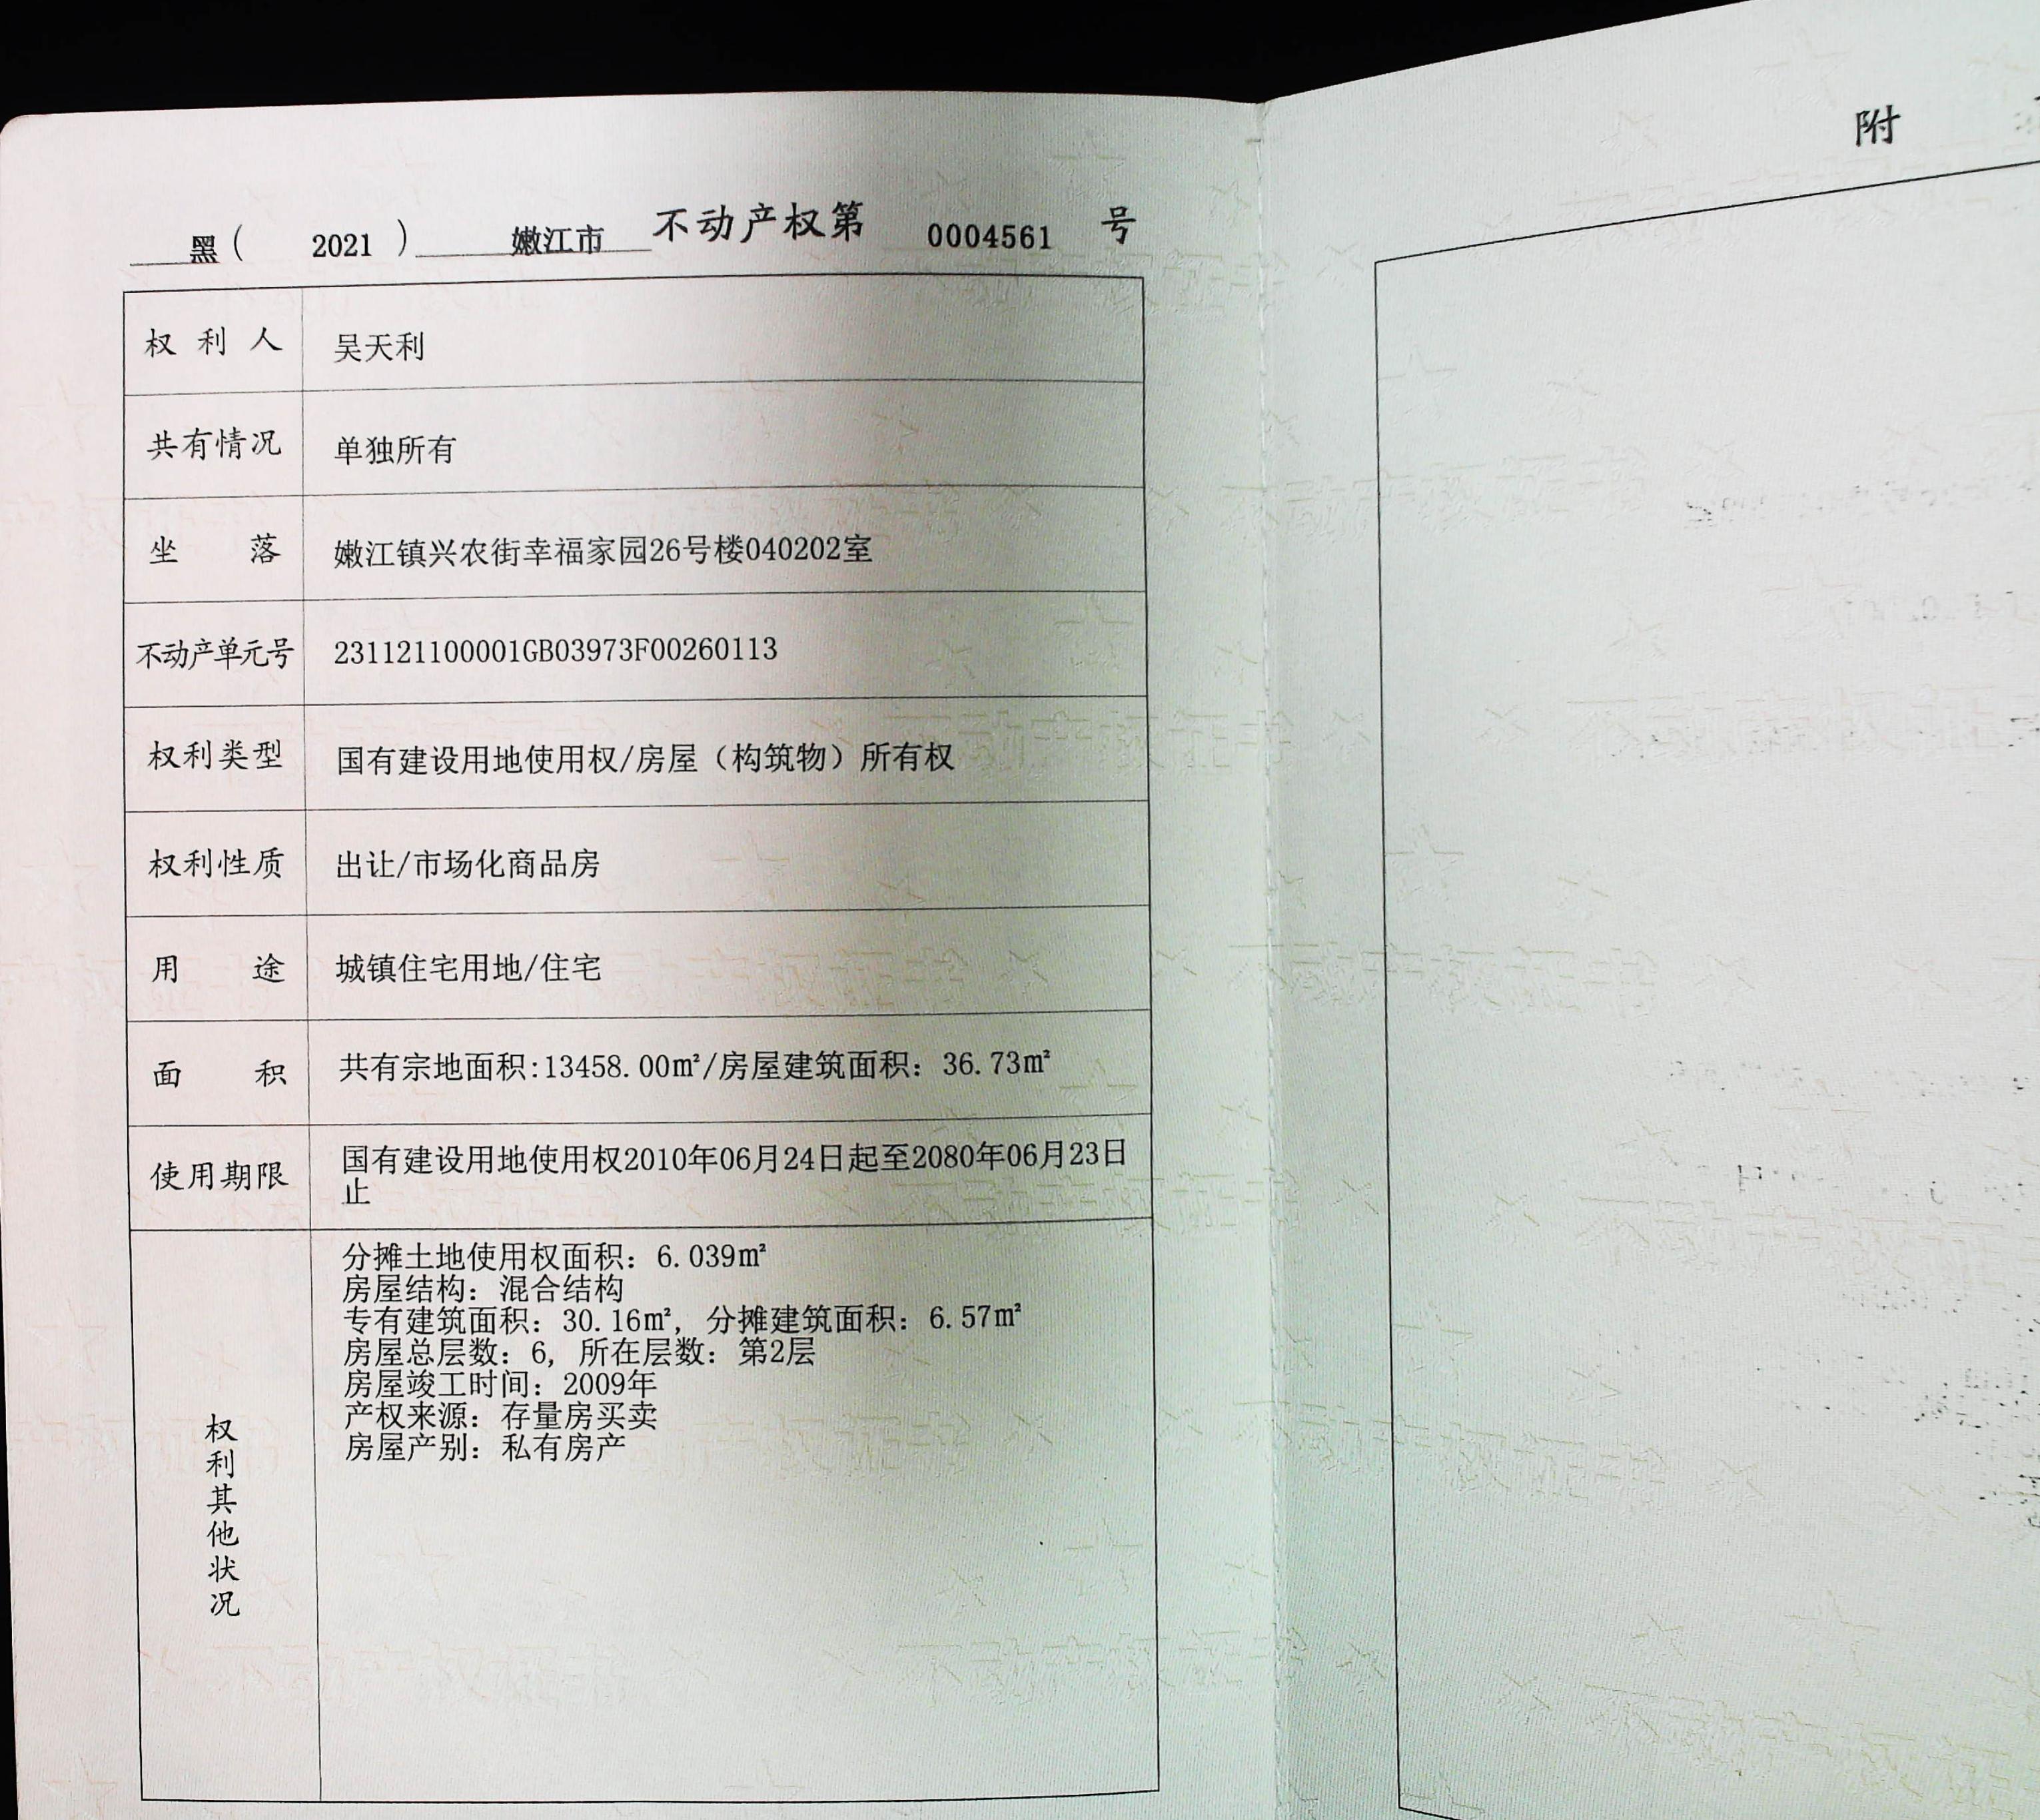 黑( 2021 ) 嫩江市 不动产权第 0004561 号
权利人 吴天利
共有情况 单独所有
坐落 嫩江镇兴农街幸福家园26号楼040202室
不动产单元号 231121100001GB03973F00260113
权利类型 国有建设用地使用权/房屋（构筑物）所有权
权利性质 出让/市场化商品房
用途 城镇住宅用地/住宅
面积 共有宗地面积:13458.00㎡/房屋建筑面积：36.73㎡
使用期限 国有建设用地使用权2010年06月24日起至2080年06月23日
止
权利其他状况
分摊土地使用权面积：6.039㎡
房屋结构：混合结构
专有建筑面积：30.16㎡，分摊建筑面积：6.57㎡
房屋总层数：6，所在层数：第2层
房屋竣工时间：2009年
产权来源：存量房买卖
房屋产别：私有房产
附